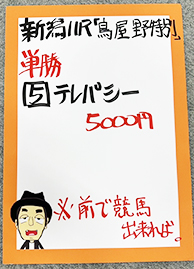 新潟11R「鳥屋野特別」
単勝
5 テレパシー
5000円
※前で競馬
出来れば。